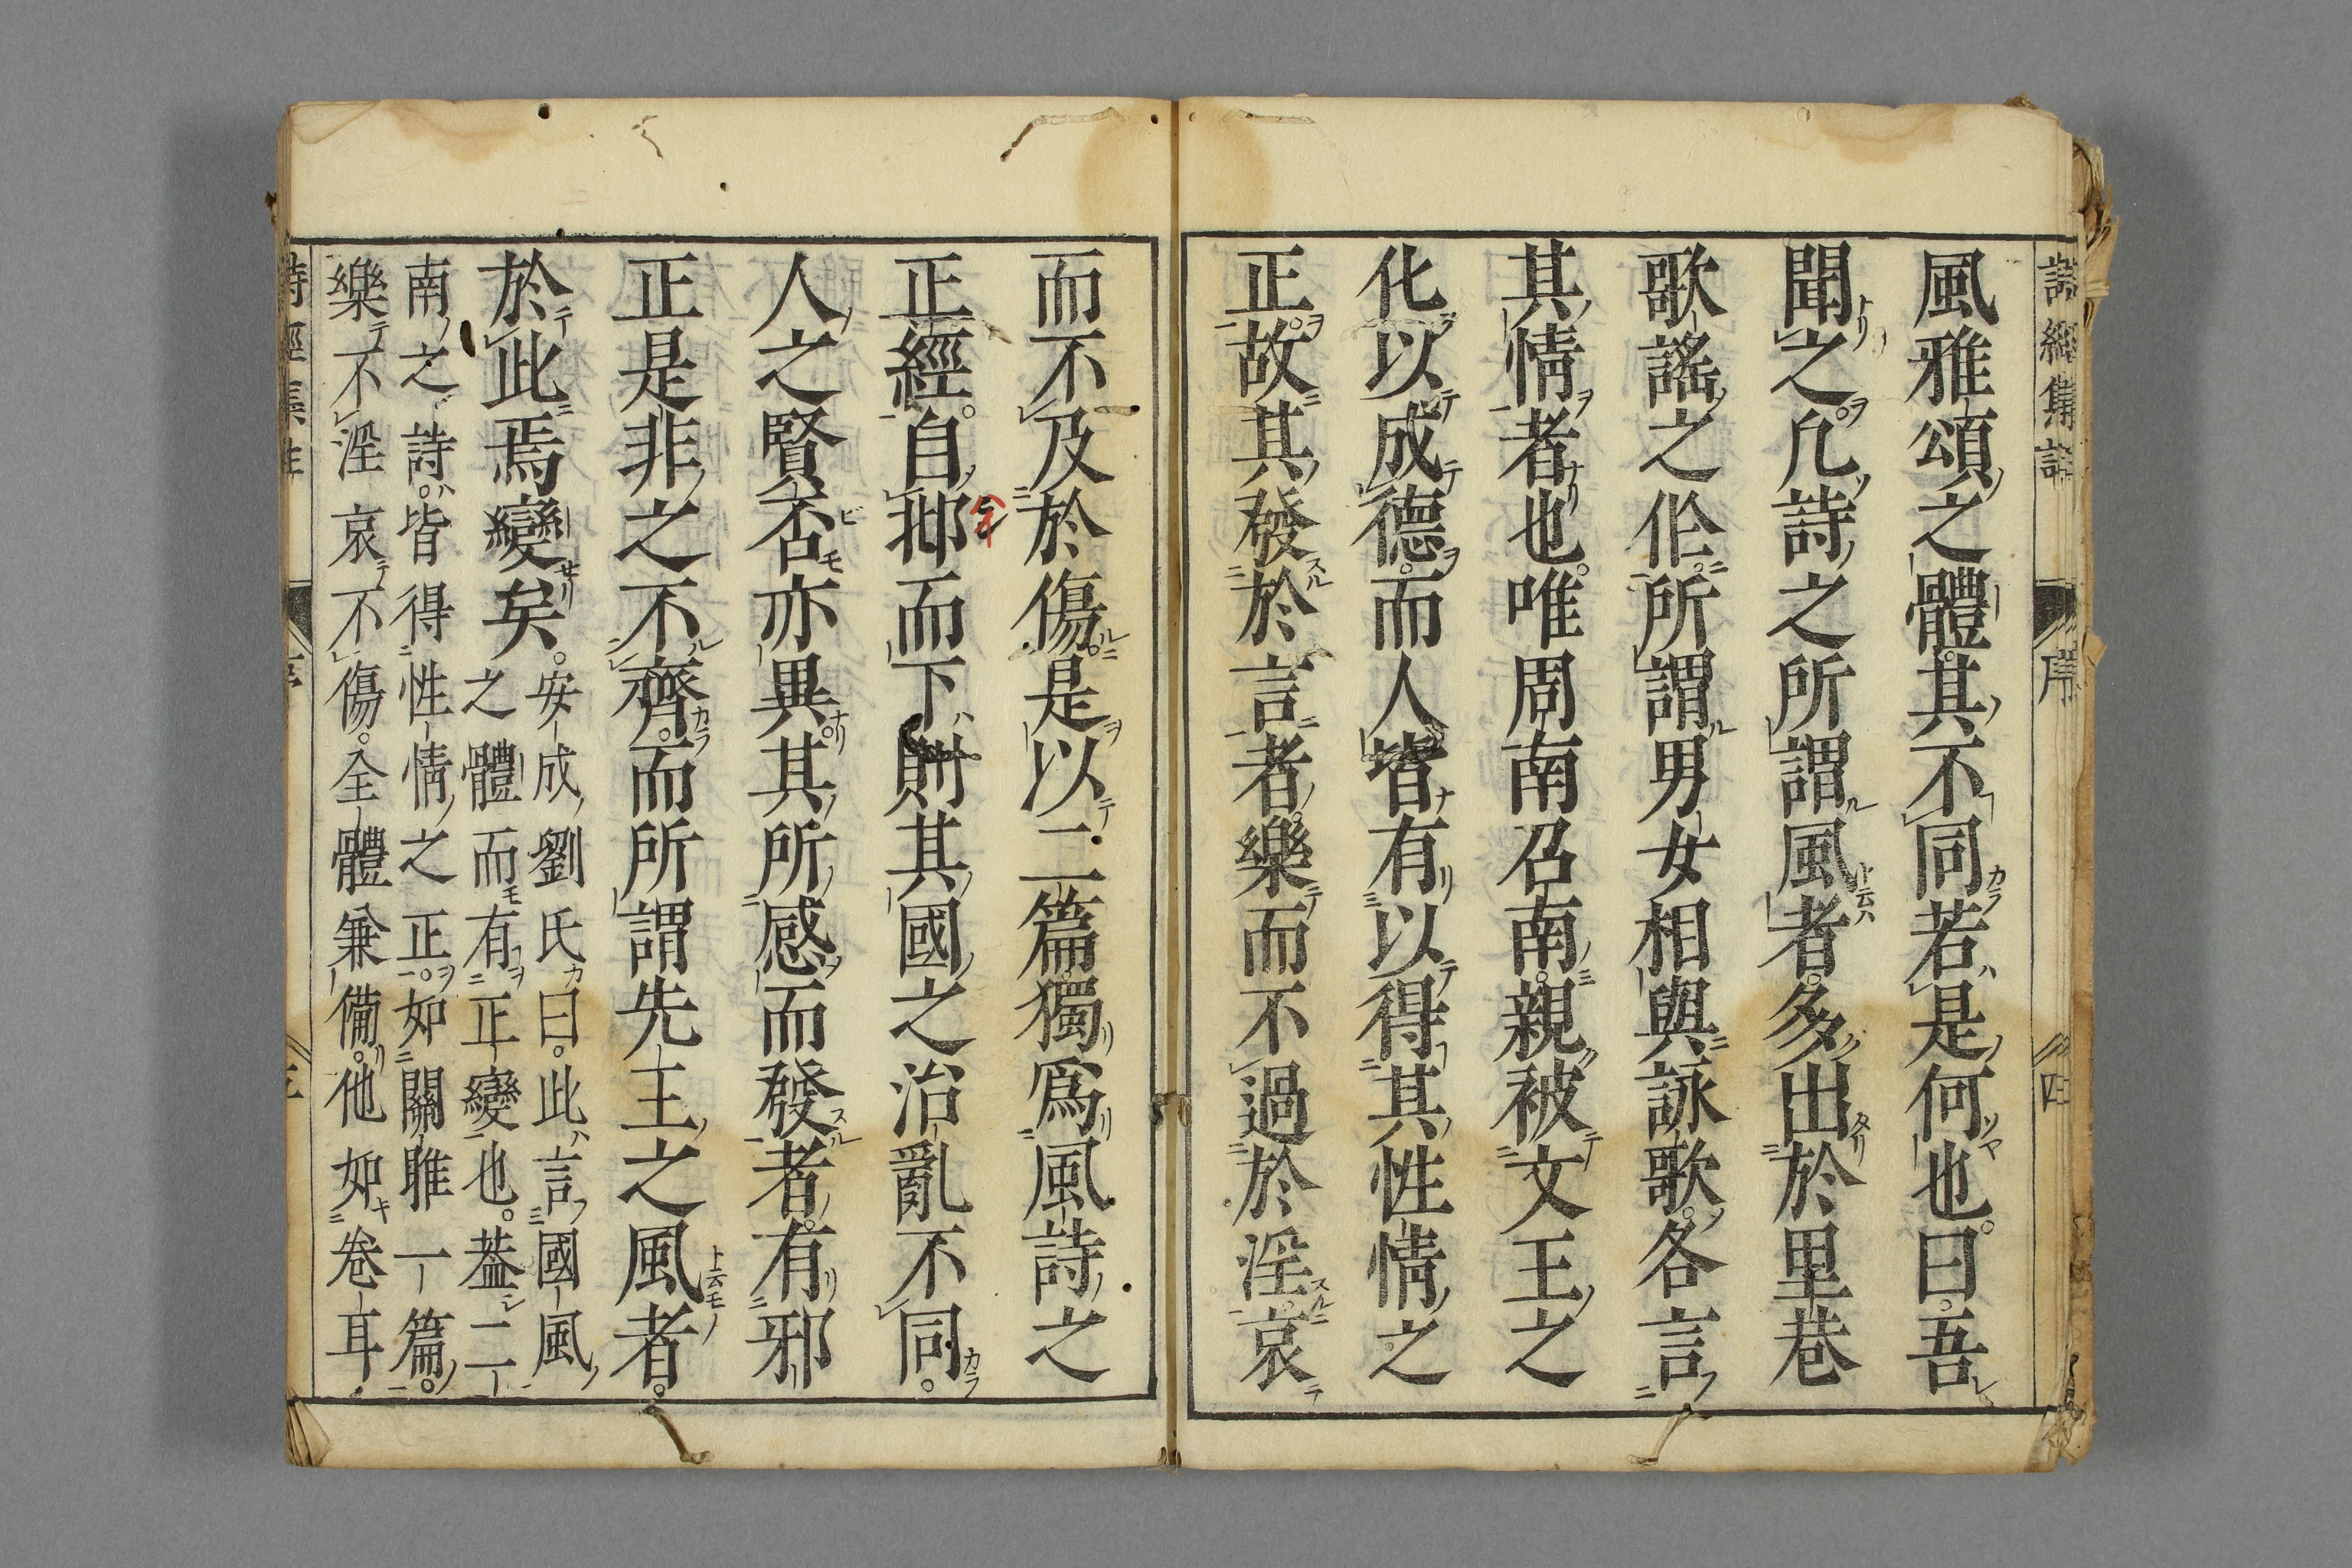 詩經集註 序 四
風雅頌之體其不同若是何也曰吾
聞之凡詩之所謂風者多出於里巷
歌謠之作所謂男女相與詠歌各言
其情者也唯周南召南親被文王之
化以成德而人皆有以得其性情之
正故其發於言者樂而不過於淫哀
而不及於傷是以二篇獨爲風詩之
正經自邶而下則其國之治亂不同
人之賢否亦異其所感而發者有邪
正是非之不齊而所謂先王之風者
於此焉變矣
安成劉氏曰此言國風
之體而有正變也蓋二
南之詩皆得性情之正如關雎一篇
樂不淫哀不傷全體兼備他如卷耳